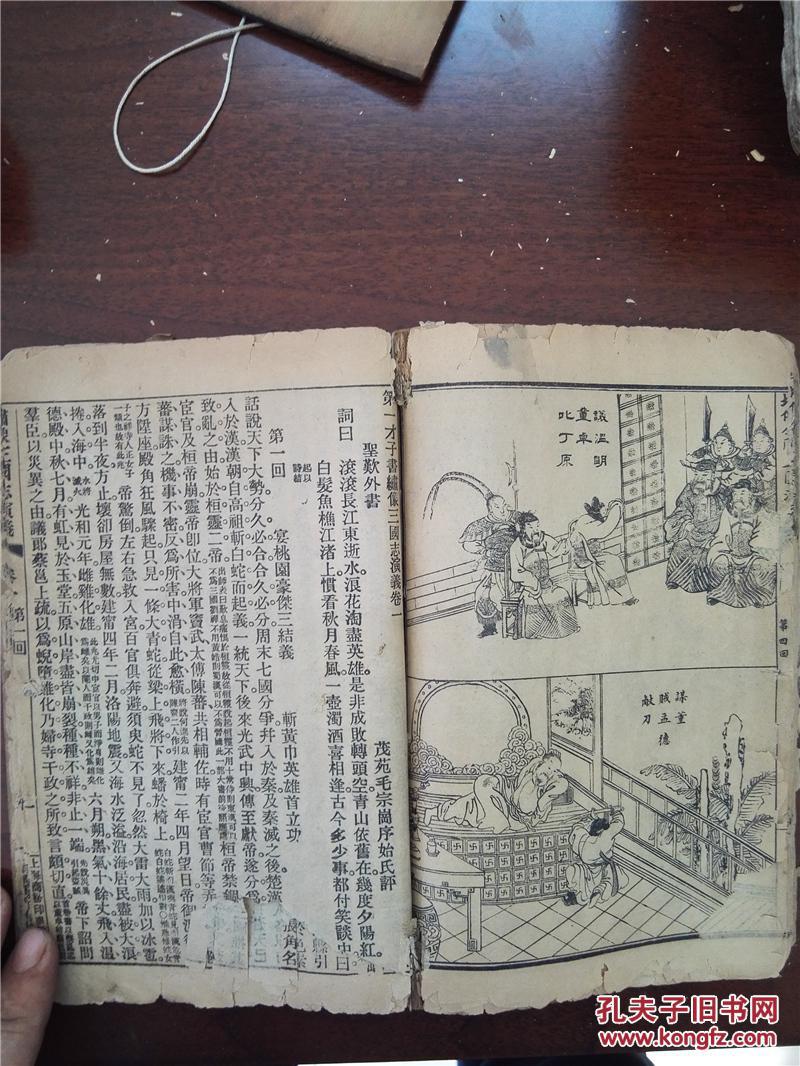 議溫明
董卓
叱丁原
第四回
謀董
賊孟德
獻刀
第一才子書繡像三國志演義卷一
聖歎外書
茂苑毛宗崗序始氏評
詞曰
滾滾長江東逝水浪花淘盡英雄是非成敗轉頭空青山依舊在幾度夕陽紅
白髮魚樵江渚上慣看秋月春風一壺濁酒喜相逢古今多少事都付笑談中曰
起以
詩結
第一回
宴桃園豪傑三結義
斬黃巾英雄首立功
話說天下大勢分久必合合久必分周末七國分爭并入於秦及秦滅之後楚漢
入於漢漢朝自高祖斬白蛇而起義一統天下後來光武中興傳至獻帝遂分爲
致亂之由始於桓靈二帝
桓帝禁錮
宦官及桓帝崩靈帝卽位大將軍竇武太傅陳蕃共相輔佐時有宦官曹節等弄
蕃謀誅之機事不密反爲所害中涓自此愈橫
建甯二年四月望日帝御
方陞座殿角狂風驟起只見一條大青蛇從梁上飛將下來蟠於椅上
帝驚倒左右急救入宮百官俱奔避須臾蛇不見了忽然大雷大雨加以冰雹
落到半夜方止壞卻房屋無數建甯四年二月洛陽地震又海水泛溢沿海居民盡被大浪
捲入海中
光和元年雌雞化雄
六月朔黑氣十餘丈飛入溫
德殿中秋七月有虹見於玉堂五原山岸盡皆崩裂種種不祥非止一端
帝下詔問
羣臣以災異之由議郎蔡邕上疏以爲蜺墮雞化乃婦寺干政之所致言頗切直
第一回
上海商務印
孔夫子旧书网
www.kongfz.com